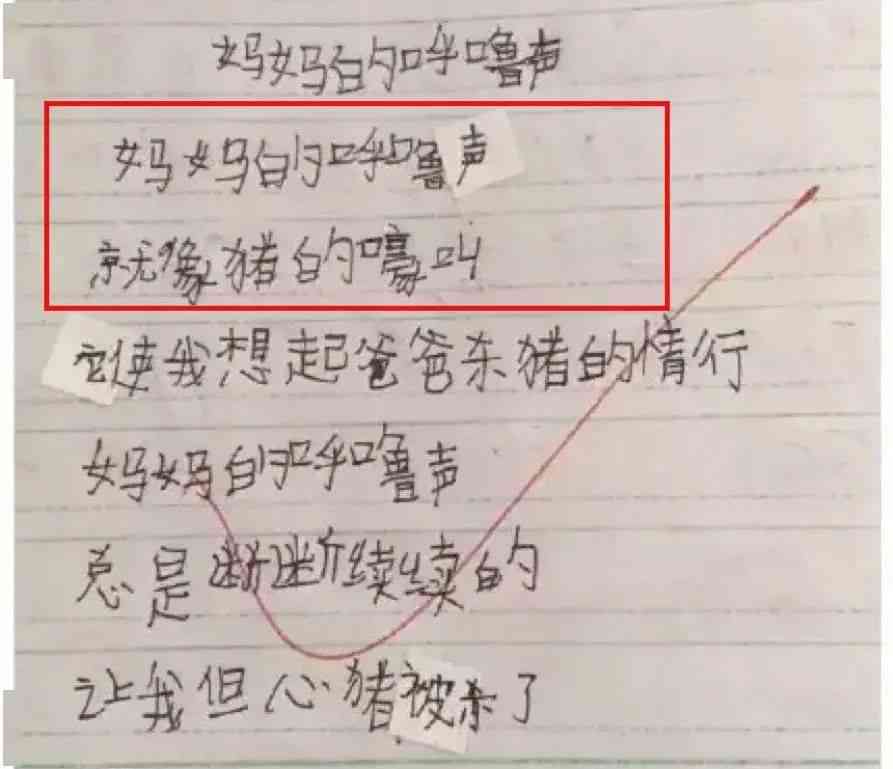 妈妈的呼噜声
妈妈的呼噜声
就像猪的嚎叫
它使我想起爸爸杀猪的情行
妈妈的呼噜声
总是断断续续的
让我但心猪被杀了